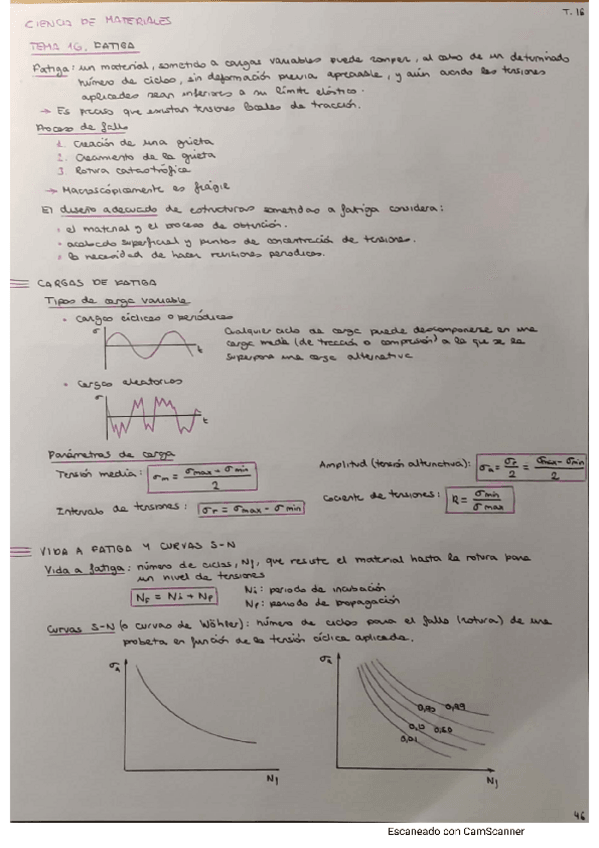 T. 16
CIENCIA DE MATERIALES
TEMA 16. FATIGA
Fatiga: un material, sometido a cargas variables puede romper, al cabo de un determinado
número de ciclos, sin deformación previa apreciable, y aún cuando las tensiones
aplicadas sean inferiores a su límite elástico.
→ Es preciso que existan tensiones locales de tracción.
Proceso de fallo
1. Creación de una grieta
2. Crecimiento de la grieta
3. Rotura catastrófica
→ Macroscópicamente es frágil
El diseño adecuado de estructuras sometidas a fatiga considera:
• el material y el proceso de obtención.
• acabado superficial y puntos de concentración de tensiones.
• la necesidad de hacer revisiones periódicas.
CARGAS DE FATIGA
Tipos de carga variable
• Cargas cíclicas o periódicas
σ
t
Cualquier ciclo de carga puede descomponerse en una
carga media (de tracción o compresión) a la que se la
superpone una carga alternativa
• Cargas aleatorias
σ
t
Parámetros de carga
Tensión media: σm = (σmax - σmin) / 2
Amplitud (tensión alternativa): σa = σr / 2 = (σmax - σmin) / 2
Intervalo de tensiones: σr = σmax - σmin
Cociente de tensiones: R = σmin / σmax
VIDA A FATIGA Y CURVAS S-N
Vida a fatiga: número de ciclos, Nf, que resiste el material hasta la rotura para
un nivel de tensiones
Nf = Ni + Np
Ni: periodo de incubación
Np: periodo de propagación
Curvas S-N (o curvas de Wöhler): número de ciclos para el fallo (rotura) de una
probeta en función de la tensión cíclica aplicada.
σa
Nf
σa
0,99
0,10
0,01
Nf
46
Escaneado con CamScanner